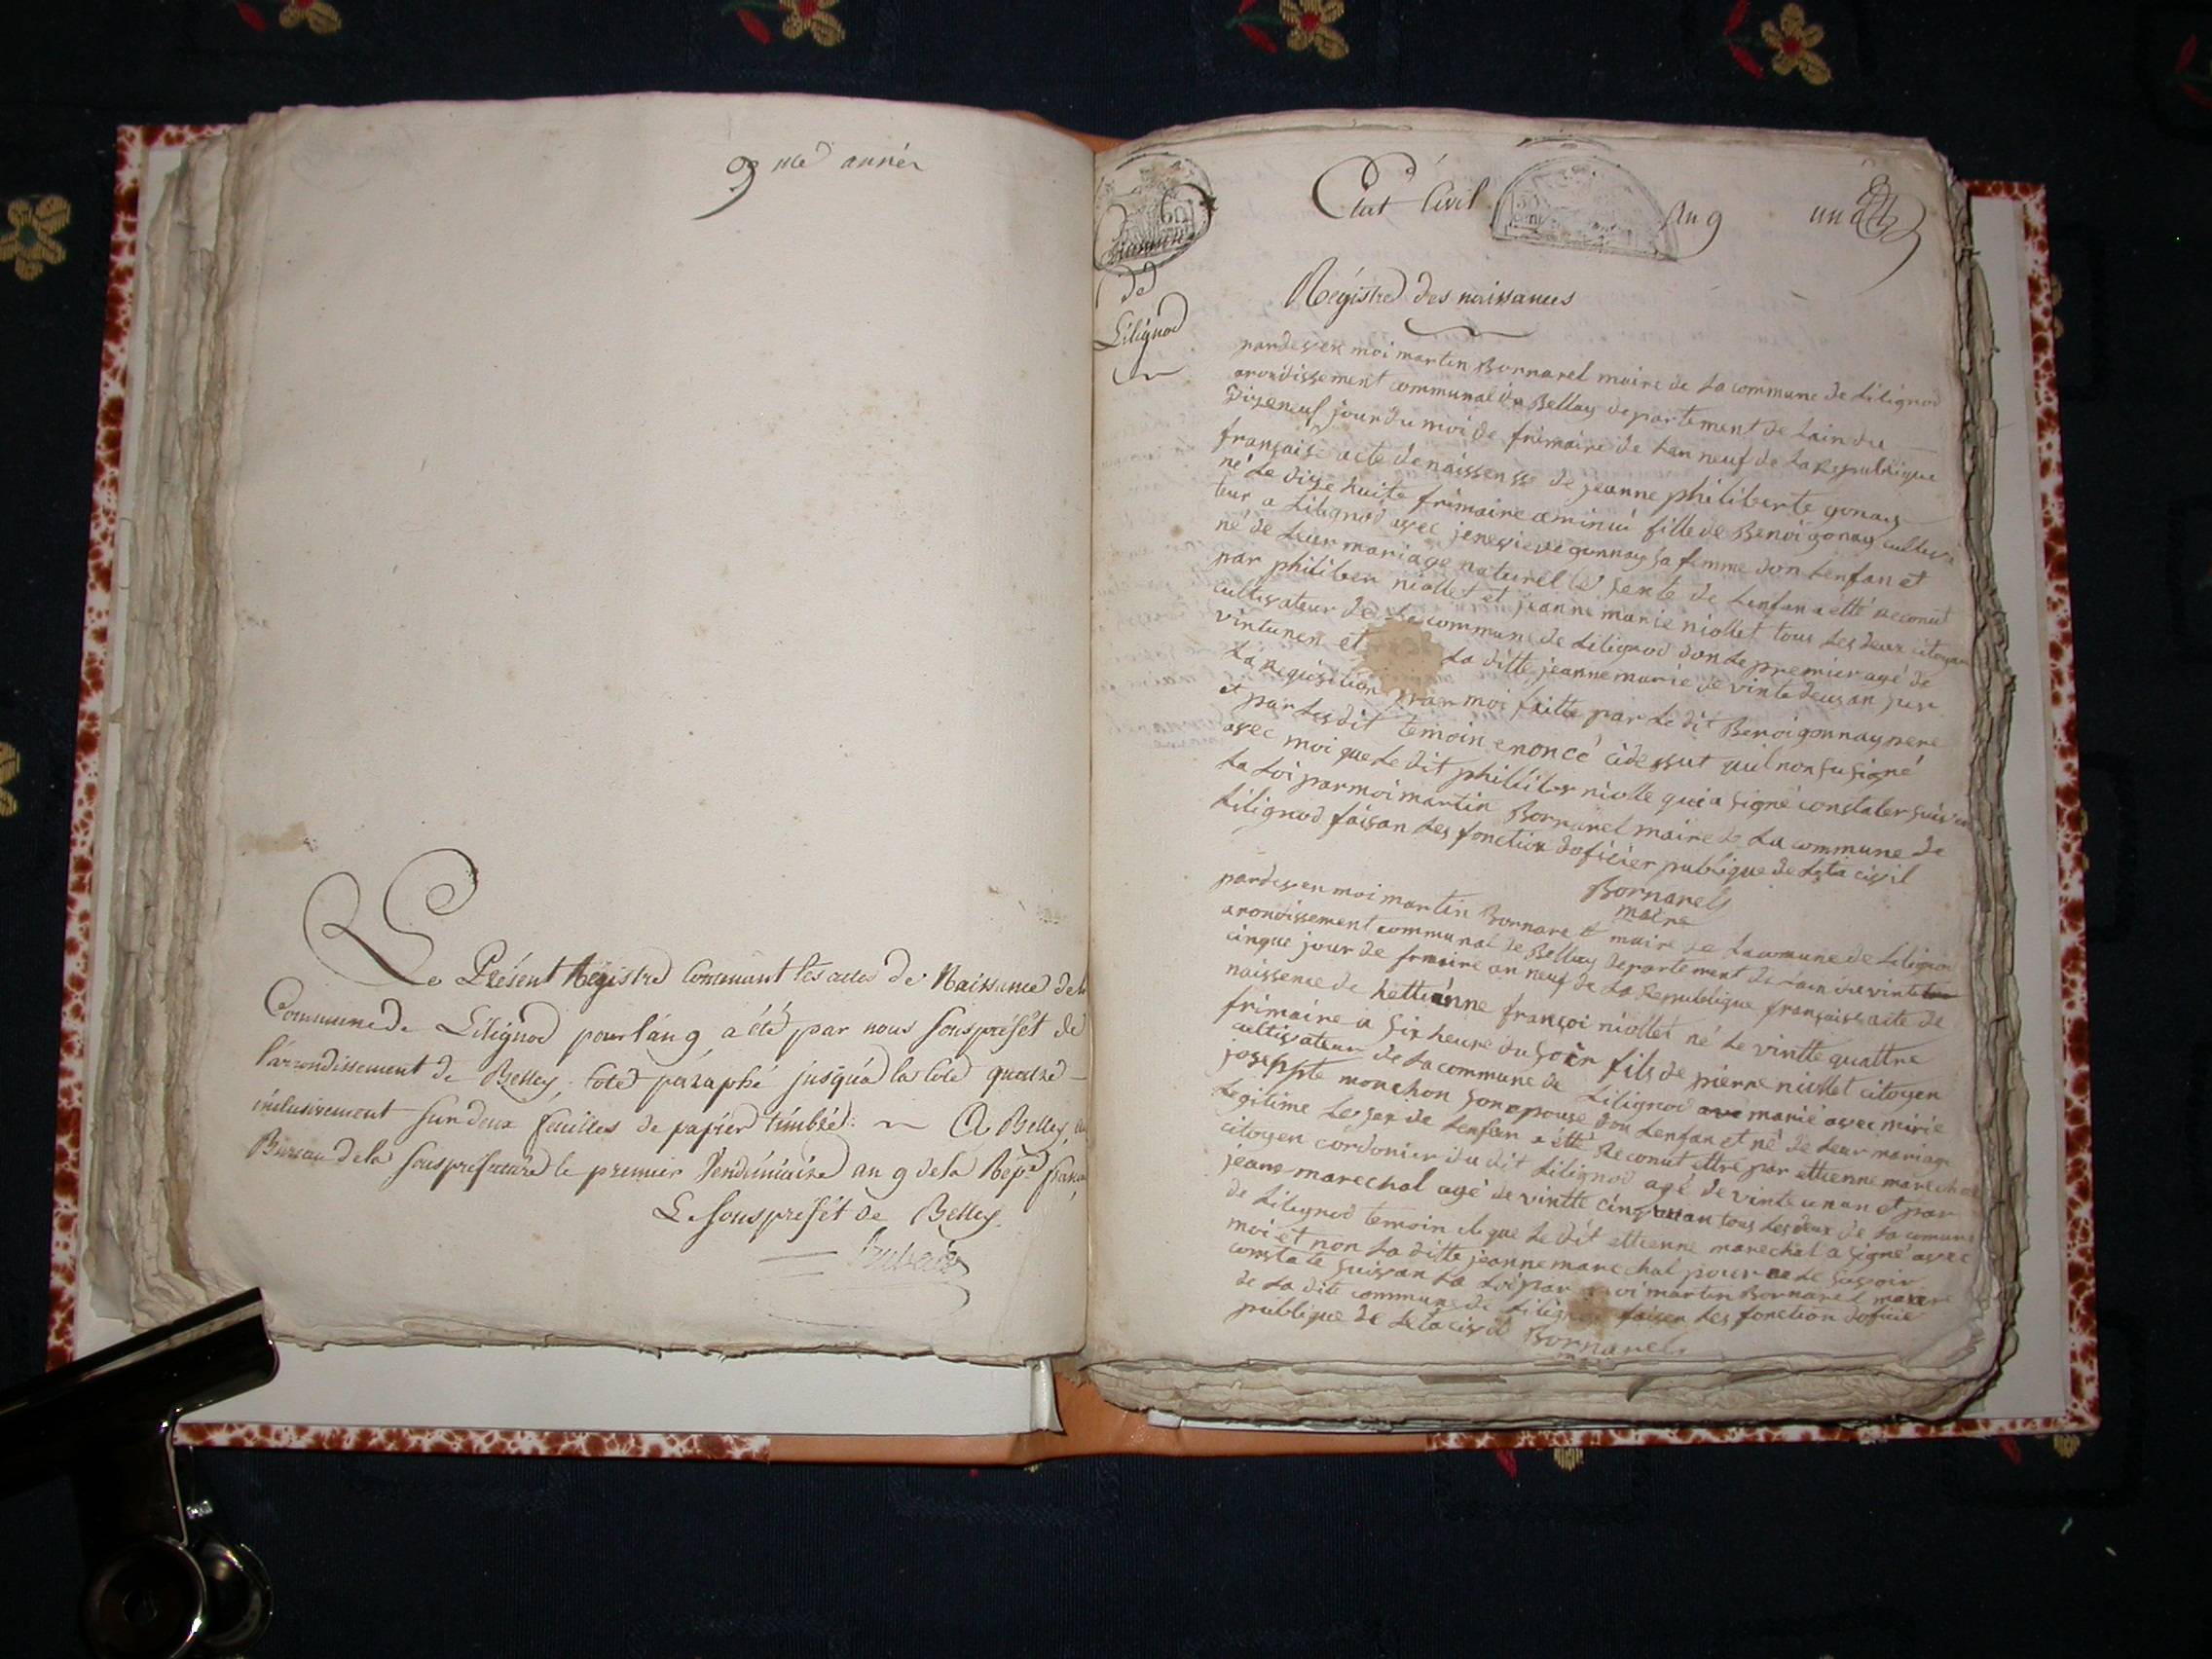 9 me année
Le Présent Régistre Contenant les actes de Naissance de la
Commune de Lilignod pour l'an 9 a été par nous Souspréfét de
l'arrondissement de Belley, Coté paraphé jusqu'a la Cote quatre
inclusivement sur deux feuilles de papier timbré. A Belley, au
Bureau de la souspréfecture le premier Vendémiaire an 9 de la Rép.e
Le souspréfét de Belley
Etat Civil An 9 un
Commune
de
Lilignod
Régistre des naissances
pardeven moi martin Bornarel maire de La commune de Lilignod
arondissement communal de Bellay departement de Lain du
Dizeneuf jour du moi de frimaire de Lan neuf de La Republique
française acte de naissensse de jeanne philiberte gonay
né Le dixe huite frimaire a minui fille de Benoi gonay cultiva
teur a Lilignod avec jenevieve gonnay sa femme don Lenfan et
né de Leur mariage naturel Le sexte de Lenfan a etté reconut
par philiber niollet et jeanne marie niollet tous Les deux citoyen
cultivateur de La commune de Lilignod don Le premier agé de
vintunen et La ditte jeanne marie de vinte deus an sur
La requisition par moi faitte par Le dit Benoi gonnay pere
et par Les dit temoin enoncé cidessut quil non su signé
avec moi que Le dit philiber niolle qui a signé constater suivan
La Loi par moi martin Bornarel maire de La commune de
Lilignod faisan Les fonction doficier publique de Léta civil
Bornarel
maire
pardeven moi martin Bornarel maire de La comune de Lilignod
arondissement communal de Bellay departement de lain du vinte
cinque jour de frimaire an neuf de La Republique française acte de
naissence de hettienne françoi niollet né Le vintte quattre
frimaire a six heure du soir fils de pierre niollet citoyen
cultivateur de La commune de Lilignod marié avec mirie
josephte monchon son epouse don Lenfan et né de Leur mariage
Legitime Le sex de Lenfan a étté Reconut ettre par ettienne marechal
citoyen cordonier du dit Lilignod agé de vinte un an et par
jeane marechal agé de vintte cinq an tous Les deux de La comune
de Lilignod temoin que Le dit ettienne marechal a signé avec
moi et non La ditte jeanne marechal pour ne Le savoir
constate suivan La Loi par moi martin Bornarel maire
de La dite commune de Lilignod faisan Les fonction doficie
publique de Leta civil Bornarel